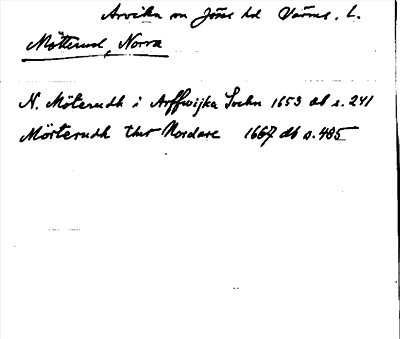 Arvika sn Jösse hd Värml. l.
Mötterud, Norra
N. Möterudh i Arffwijka Sochn 1653 db s. 241
Mörterudh thet Nordare 1667 db s. 485